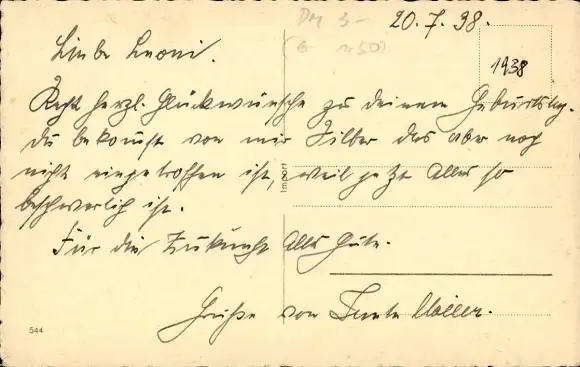 20.7.38.
1938
Liebe Leoni.
Recht herzl. Glückwünsche zu deinem Geburtstag.
du bekomst von mir Silber das aber noch
nicht eingetroffen ist, weil jetzt alles so
beschwerlich ist.
Für die Zukunft alles Gute.
Grüße von Tante
Import
544